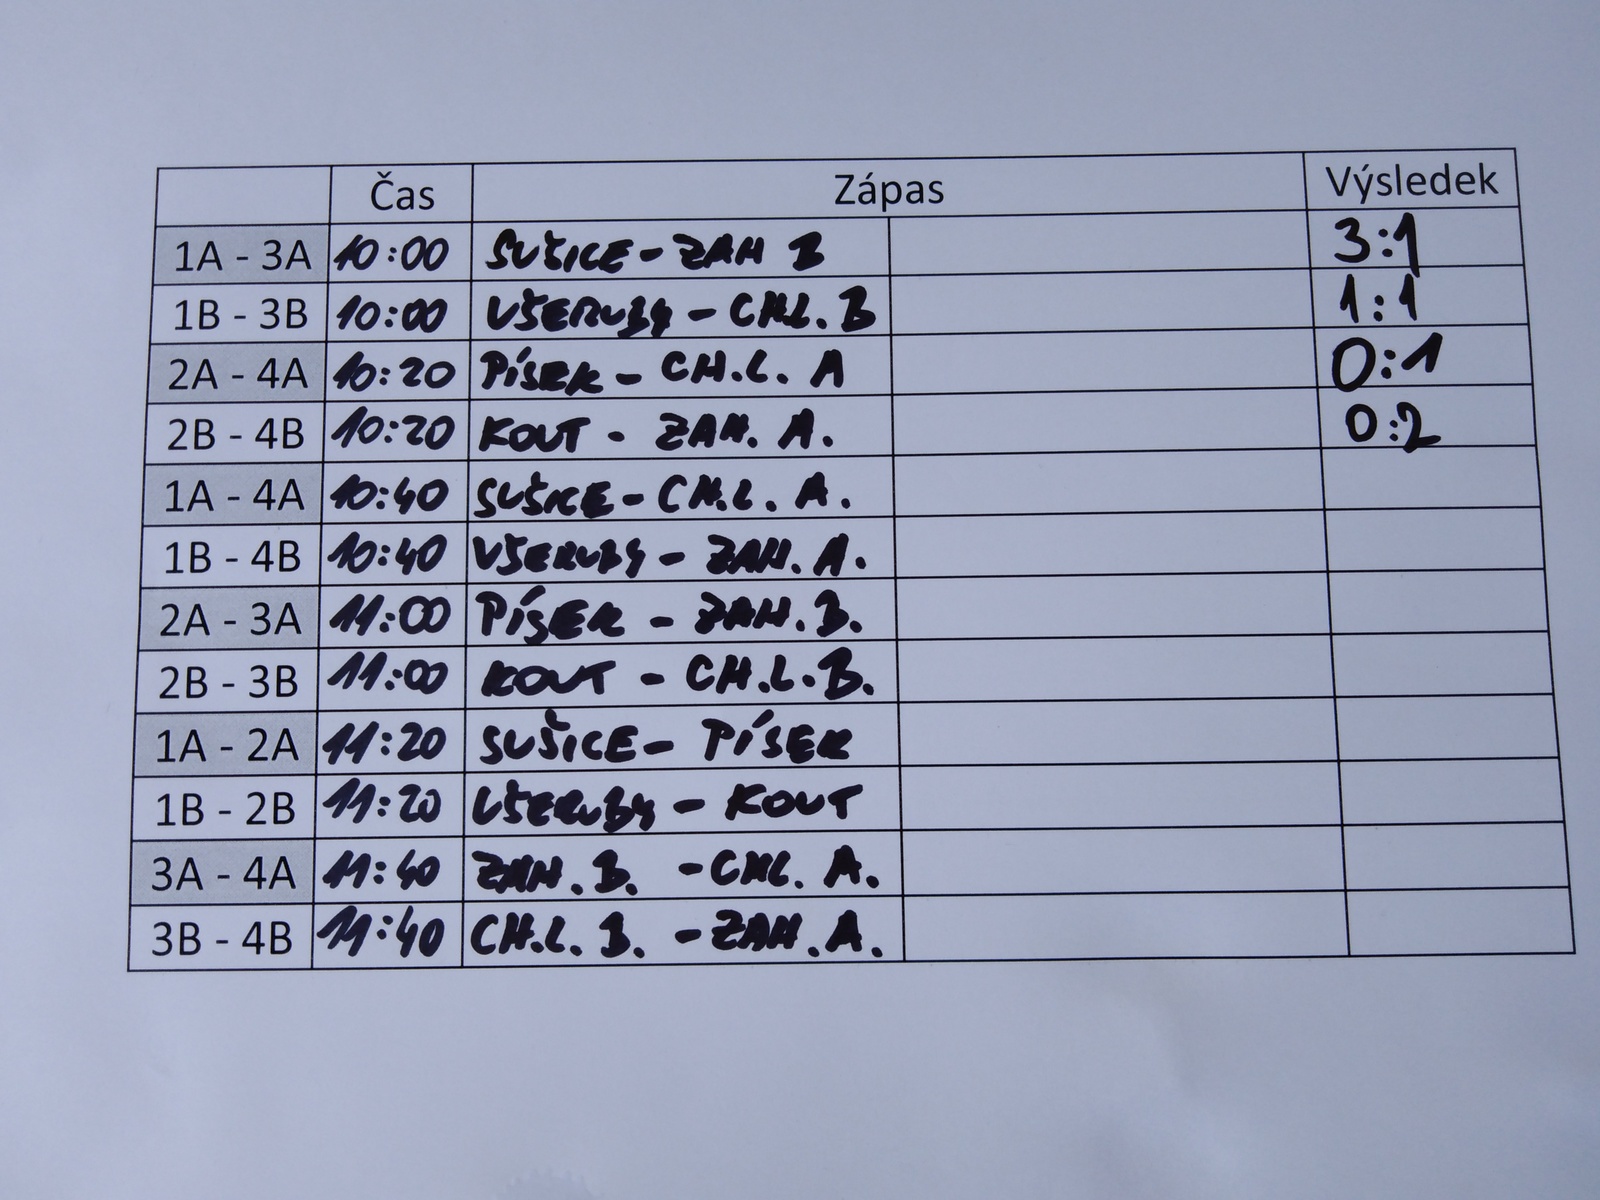 Čas Zápas Výsledek
1A - 3A 10:00 SUŠICE - ZAH B 3:1
1B - 3B 10:00 VŠERUBY - CH.L. B 1:1
2A - 4A 10:20 PÍSEK - CH.L. A 0:1
2B - 4B 10:20 KOUT - ZAH. A. 0:2
1A - 4A 10:40 SUŠICE - CH.L. A.
1B - 4B 10:40 VŠERUBY - ZAH. A.
2A - 3A 11:00 PÍSEK - ZAH. B.
2B - 3B 11:00 KOUT - CH.L. B.
1A - 2A 11:20 SUŠICE - PÍSEK
1B - 2B 11:20 VŠERUBY - KOUT
3A - 4A 11:40 ZAH. B. - CHL. A.
3B - 4B 11:40 CH.L. B. - ZAH. A.